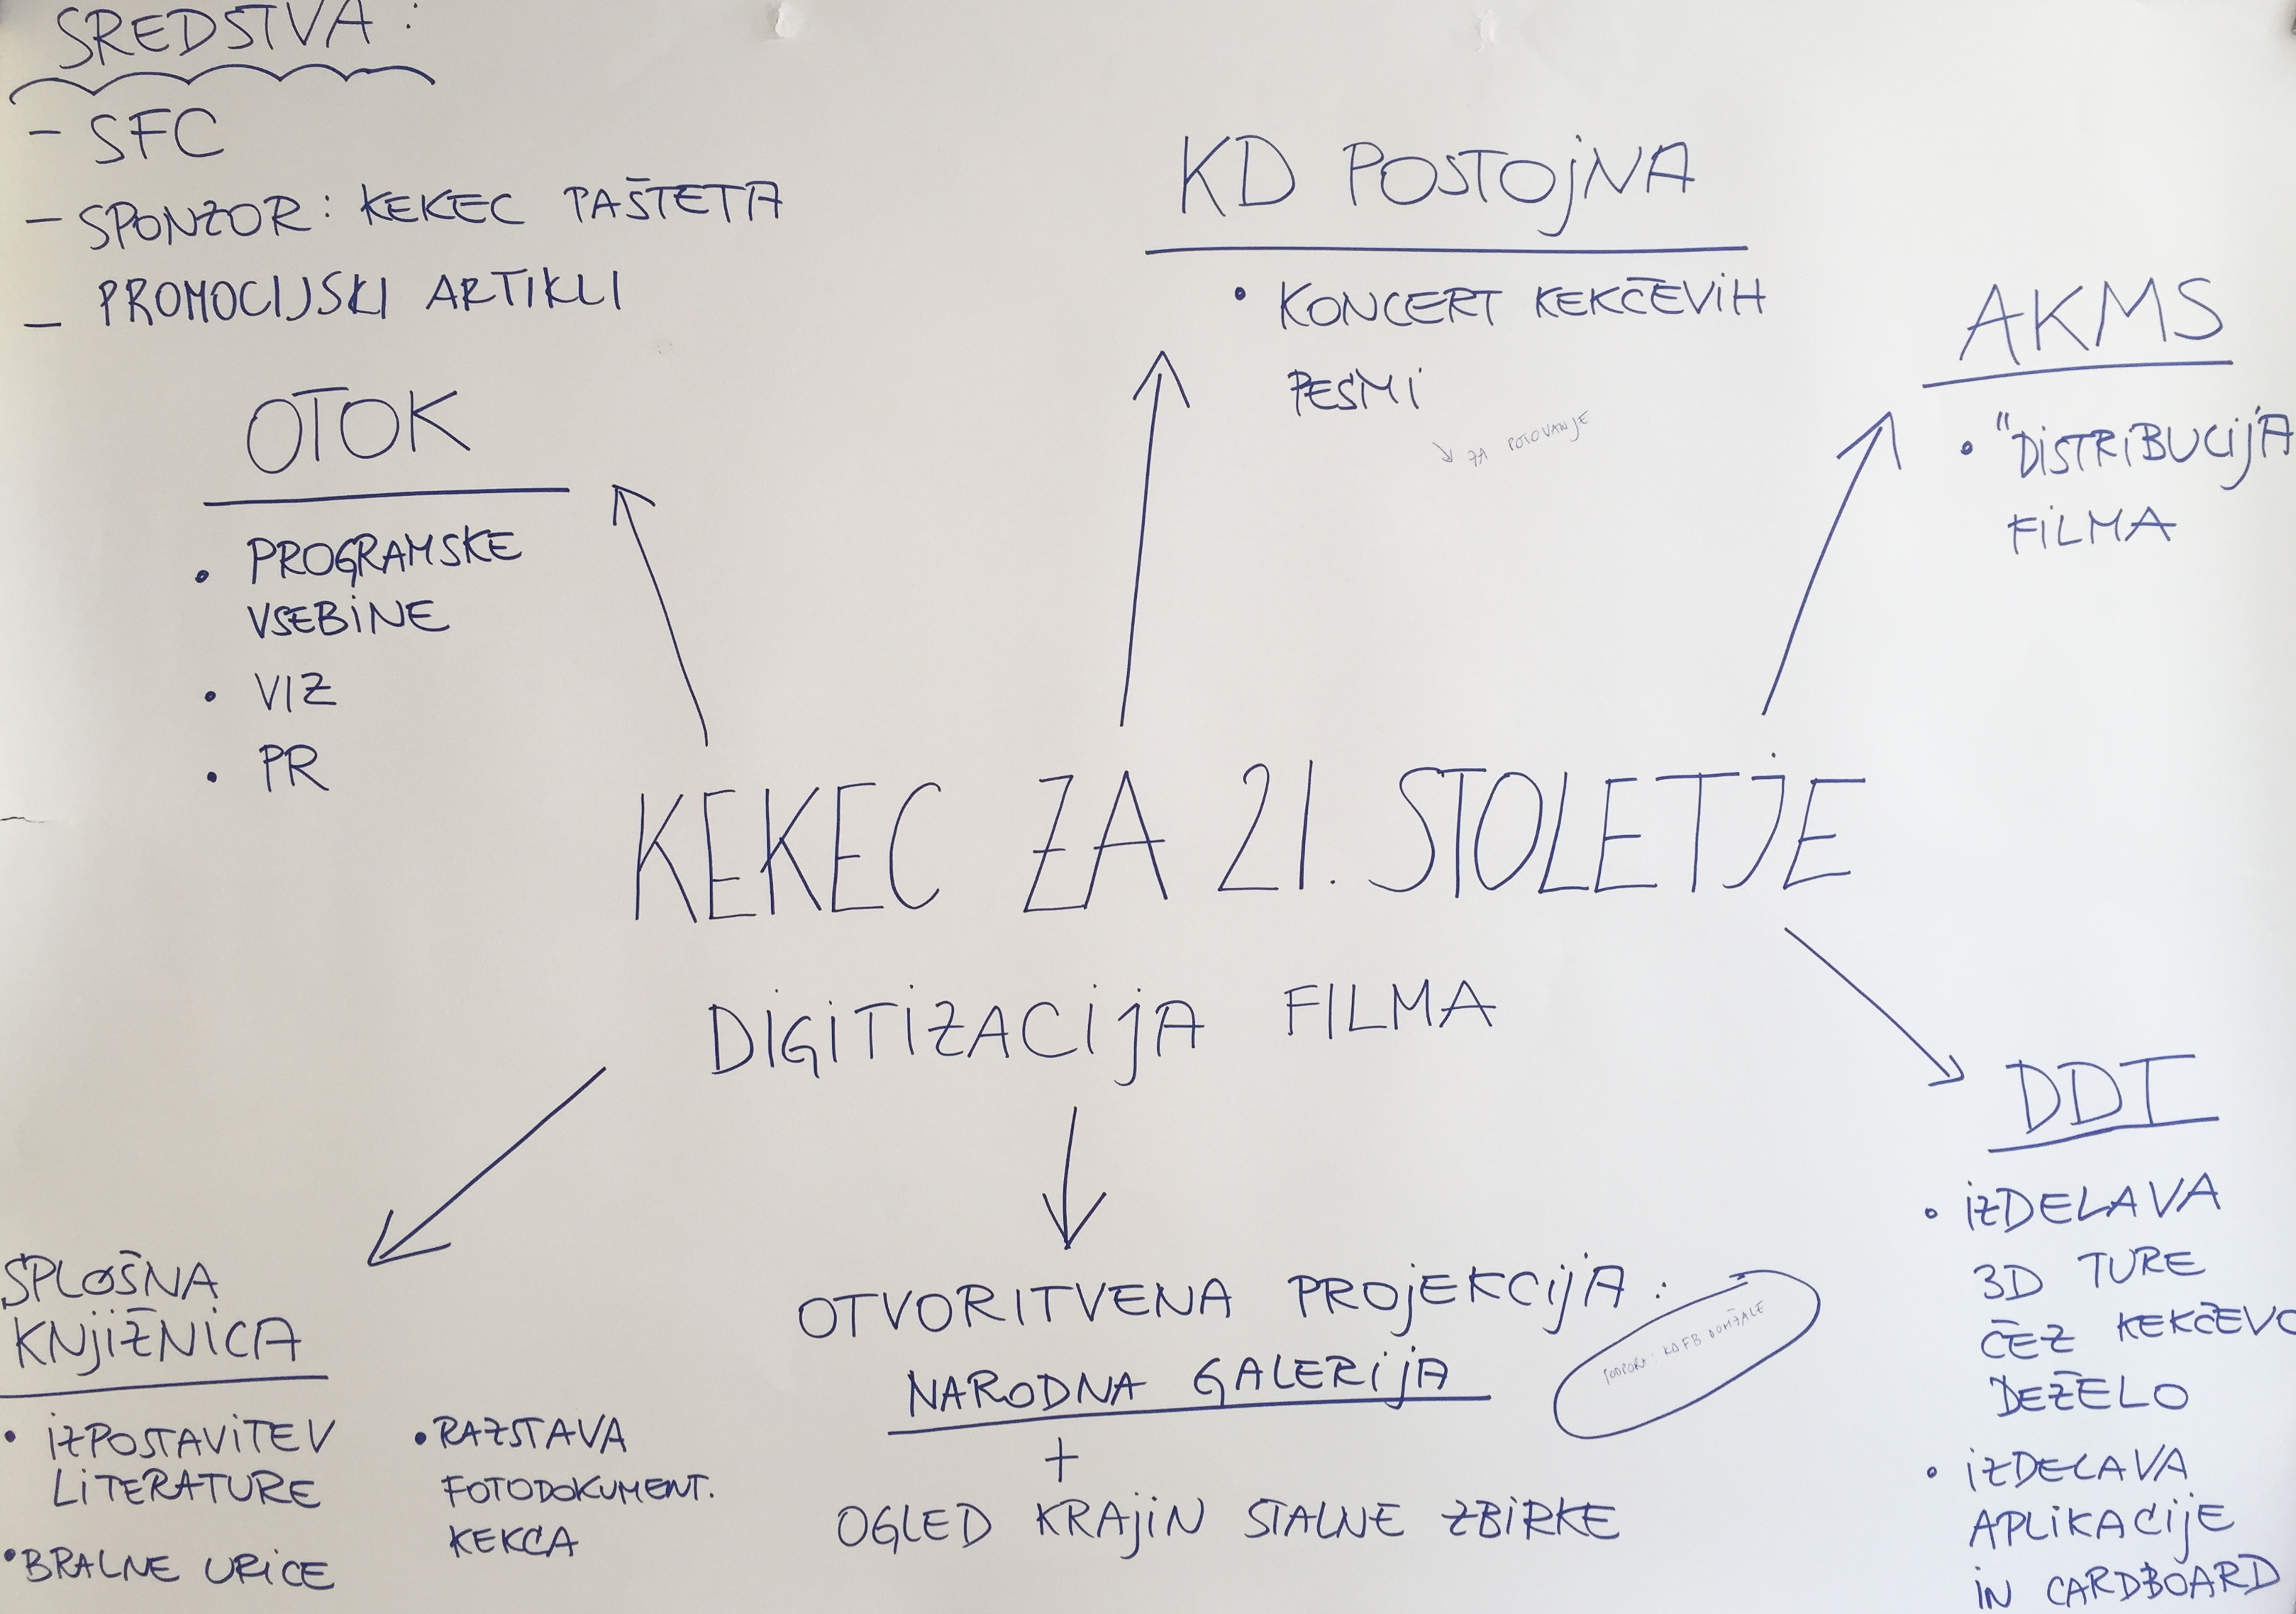 SREDSTVA:
- SFC
- SPONZOR: KEKEC PAŠTETA
- PROMOCIJSKI ARTIKLI
OTOK
• PROGRAMSKE
VSEBINE
• VIZ
• PR
KD POSTOJNA
• KONCERT KEKČEVIH
PESMI
↘ ZA POTOVANJE
AKMS
• "DISTRIBUCIJA
FILMA
KEKEC ZA 21. STOLETJE
DIGITIZACIJA FILMA
DDI
• IZDELAVA
3D TURE
ČEZ KEKČEVO
DEŽELO
• IZDELAVA
APLIKACIJE
IN CARDBOARD
SPLOŠNA
KNJIŽNICA
• IZPOSTAVITEV
LITERATURE
• BRALNE URICE
• RAZSTAVA
FOTODOKUMENT.
KEKCA
OTVORITVENA PROJEKCIJA:
NARODNA GALERIJA
+
OGLED KRAJIN STALNE ZBIRKE
PODPORA: KD FB DOMŽALE